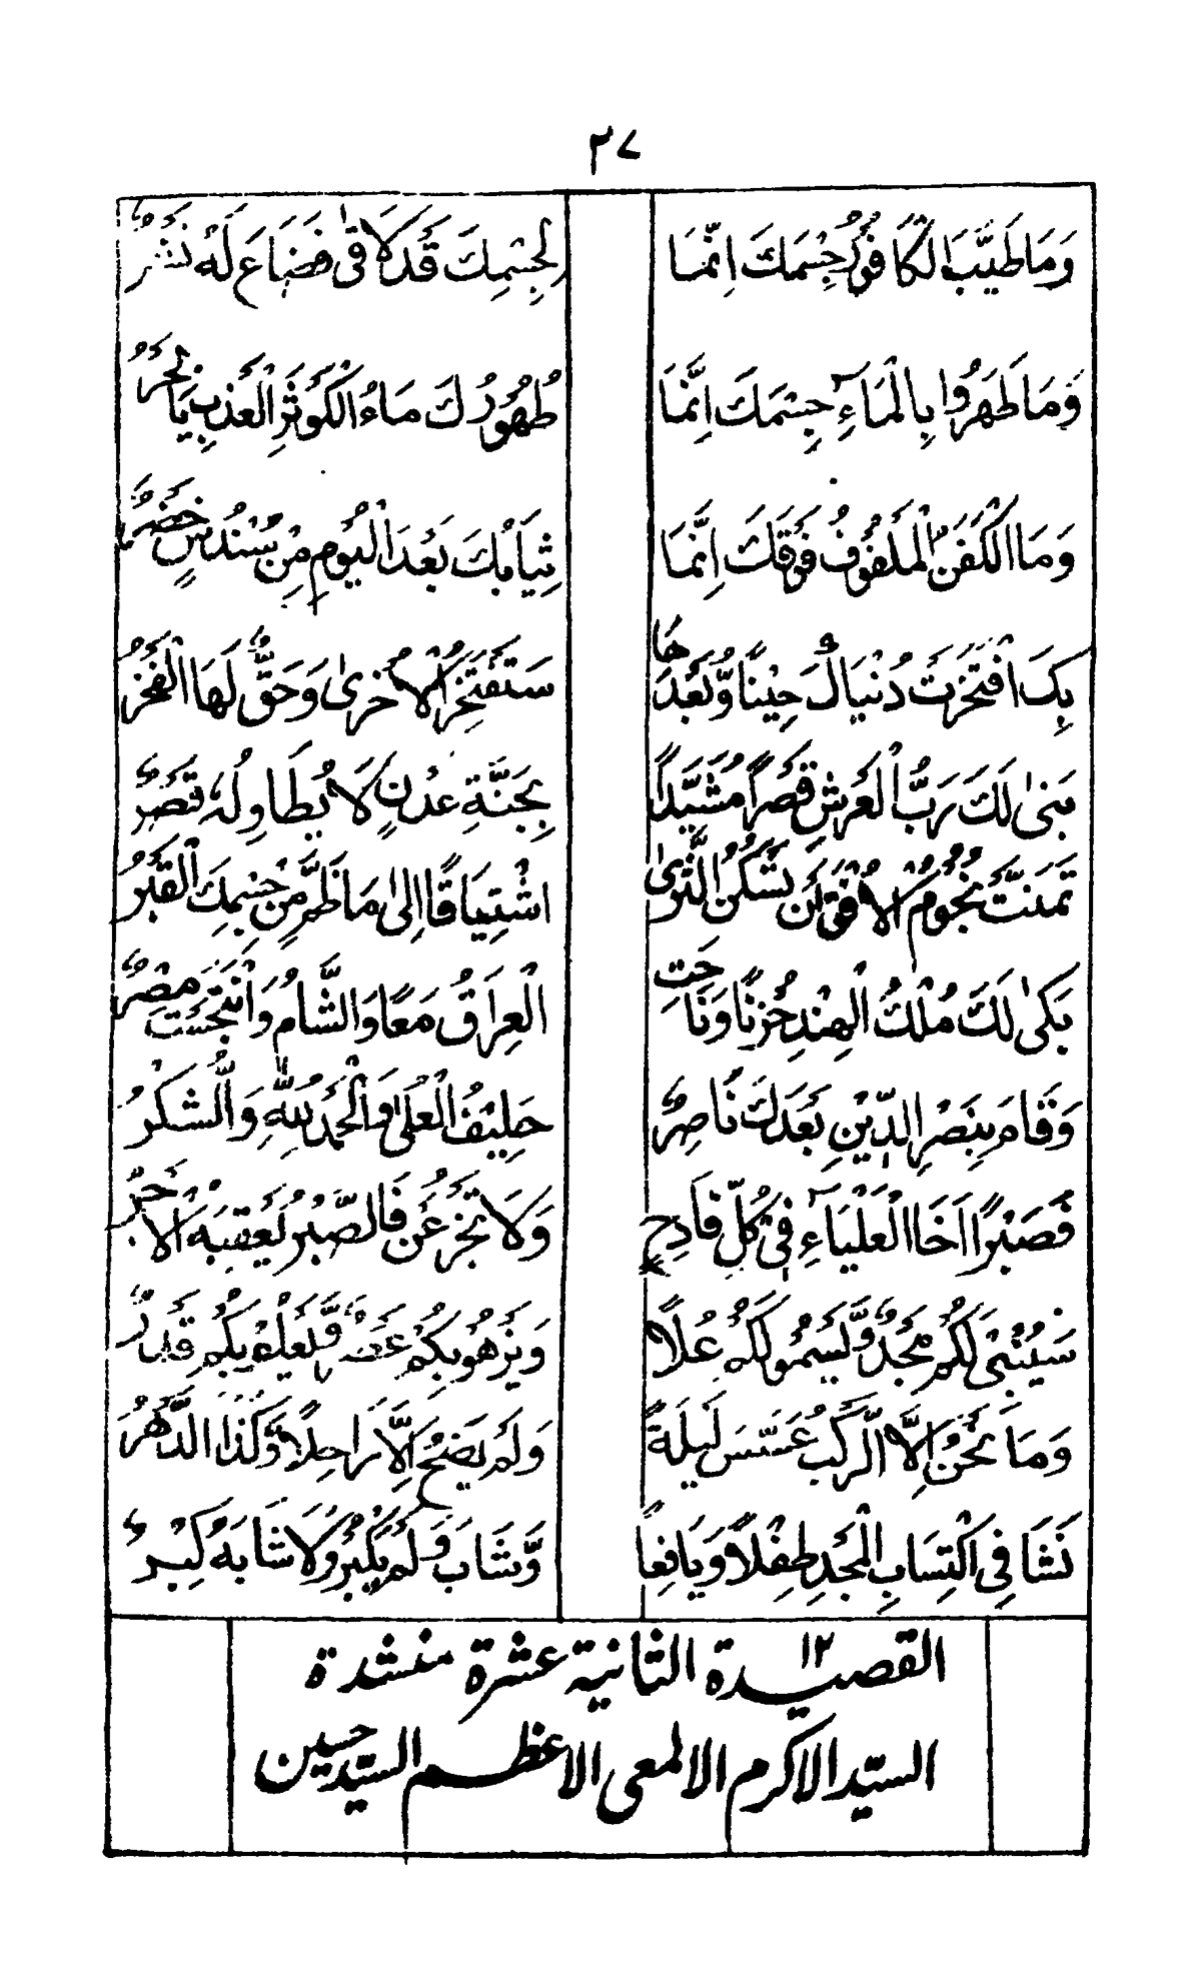 ٢٧
وَمَا طَيَّبَ الْكَافُورُ جِسْمَكَ اِنَّمَا لِجِسْمِكَ قَدْ لَاقٰى فَضَاعَ لَهٗ نَشْرٌ
وَمَا طَهَرُوا بِالْمَاءِ جِسْمَكَ اِنَّمَا طُهُورُكَ مَاءُ الْكَوْثَرِ الْعَذْبِ يَا بَحْرُ
وَمَا الْكَفَنُ الْمَلْفُوفُ فَوْقَكَ اِنَّمَا ثِيَابُكَ بَعْدَ الْيَوْمِ مِنْ سُنْدُسٍ خُضْرٌ
بِكَ افْتَخَرَتْ دُنْيَاكَ حِيْنًا وَّبَعْدَهَا سَتَفْتَخِرُ الْاُخْرٰى وَحَقٌّ لَهَا الْفَخْرُ
بَنٰى لَكَ رَبُّ الْعَرْشِ قَصْرًا مُشَيَّدًا بِجَنَّةِ عَدْنٍ لَا يُطَاوِلُهٗ قَصْرٌ
تَمَنَّتْ نُجُوْمُ الْاُفْقِ اَنْ تَسْكُنَ الثَّرٰى اشْتِيَاقًا اِلٰى مَا ضَمَّ مِنْ جِسْمِكَ الْقَبْرُ
بَكٰى لَكَ مُلْكُ الْهِنْدِ حُزْنًا وَنَاحَتِ الْعِرَاقُ مَعًا وَالشَّامُ وَانْتَحَبَتْ مِصْرُ
وَقَامَ بِنَصْرِ الدِّيْنِ بَعْدَكَ نَاصِرٌ حَلِيْفُ الْعُلٰى وَالْحَمْدُ لِلّٰهِ وَالشُّكْرُ
فَصَبْرًا اَخَا الْعَلْيَاءِ فِيْ كُلِّ فَادِحٍ وَلَا تَجْزَعَنْ فَالصَّبْرُ يَعْقِبُهُ الْاَجْرُ
سَيُبْنٰى لَكُمْ مَجْدٌ وَّيَسْمُو لَكُمْ عُلًا وَيَزْهُو بِكُمْ عَصْرٌ وَّيَعْلُو بِكُمْ قَدْرٌ
وَمَا نَحْنُ اِلَّا الرَّكْبُ عَسَّسَ لَيْلَةً وَلَمْ يَضْحَ اِلَّا رَاحِلًا وَكَذَا الدَّهْرُ
نَشَا فِي اكْتِسَابِ الْمَجْدِ طِفْلًا وَيَافِعًا وَّشَابَ وَلَمْ يَكْبُرْ وَلَا شَابَهُ كِبْرٌ
القصيدة ١٢ الثانية عشرة منشدة
السيّد الاكرم الالمعى الاعظم السيّد حسين